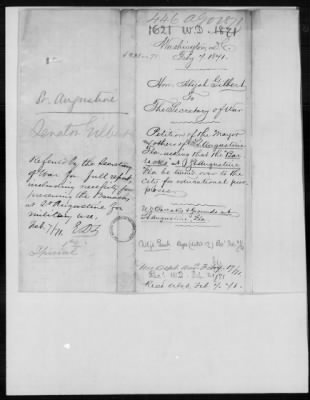 446 AGO 1871
1621 W.D. 1871
Washington, D.C.
Feby 7 1871.
Hon. Abijah Gilbert
to
The Secretary of War
Petition of the Mayor
& others of St. Augustine
Fla. asking that the Bar
racks at St. Augustine
Fla be turned over to the
City for educational pur
poses.
Barracks & Grounds at
St Augustine, Fla
St. Augustine
Senator Gilbert
Referred by the Secretary
of War for full report,
including necessity for
preserving the Barracks
at St Augustine for
military use.
Feb 7/71. E.D.T.
Special
Rec'd W.D. Feb